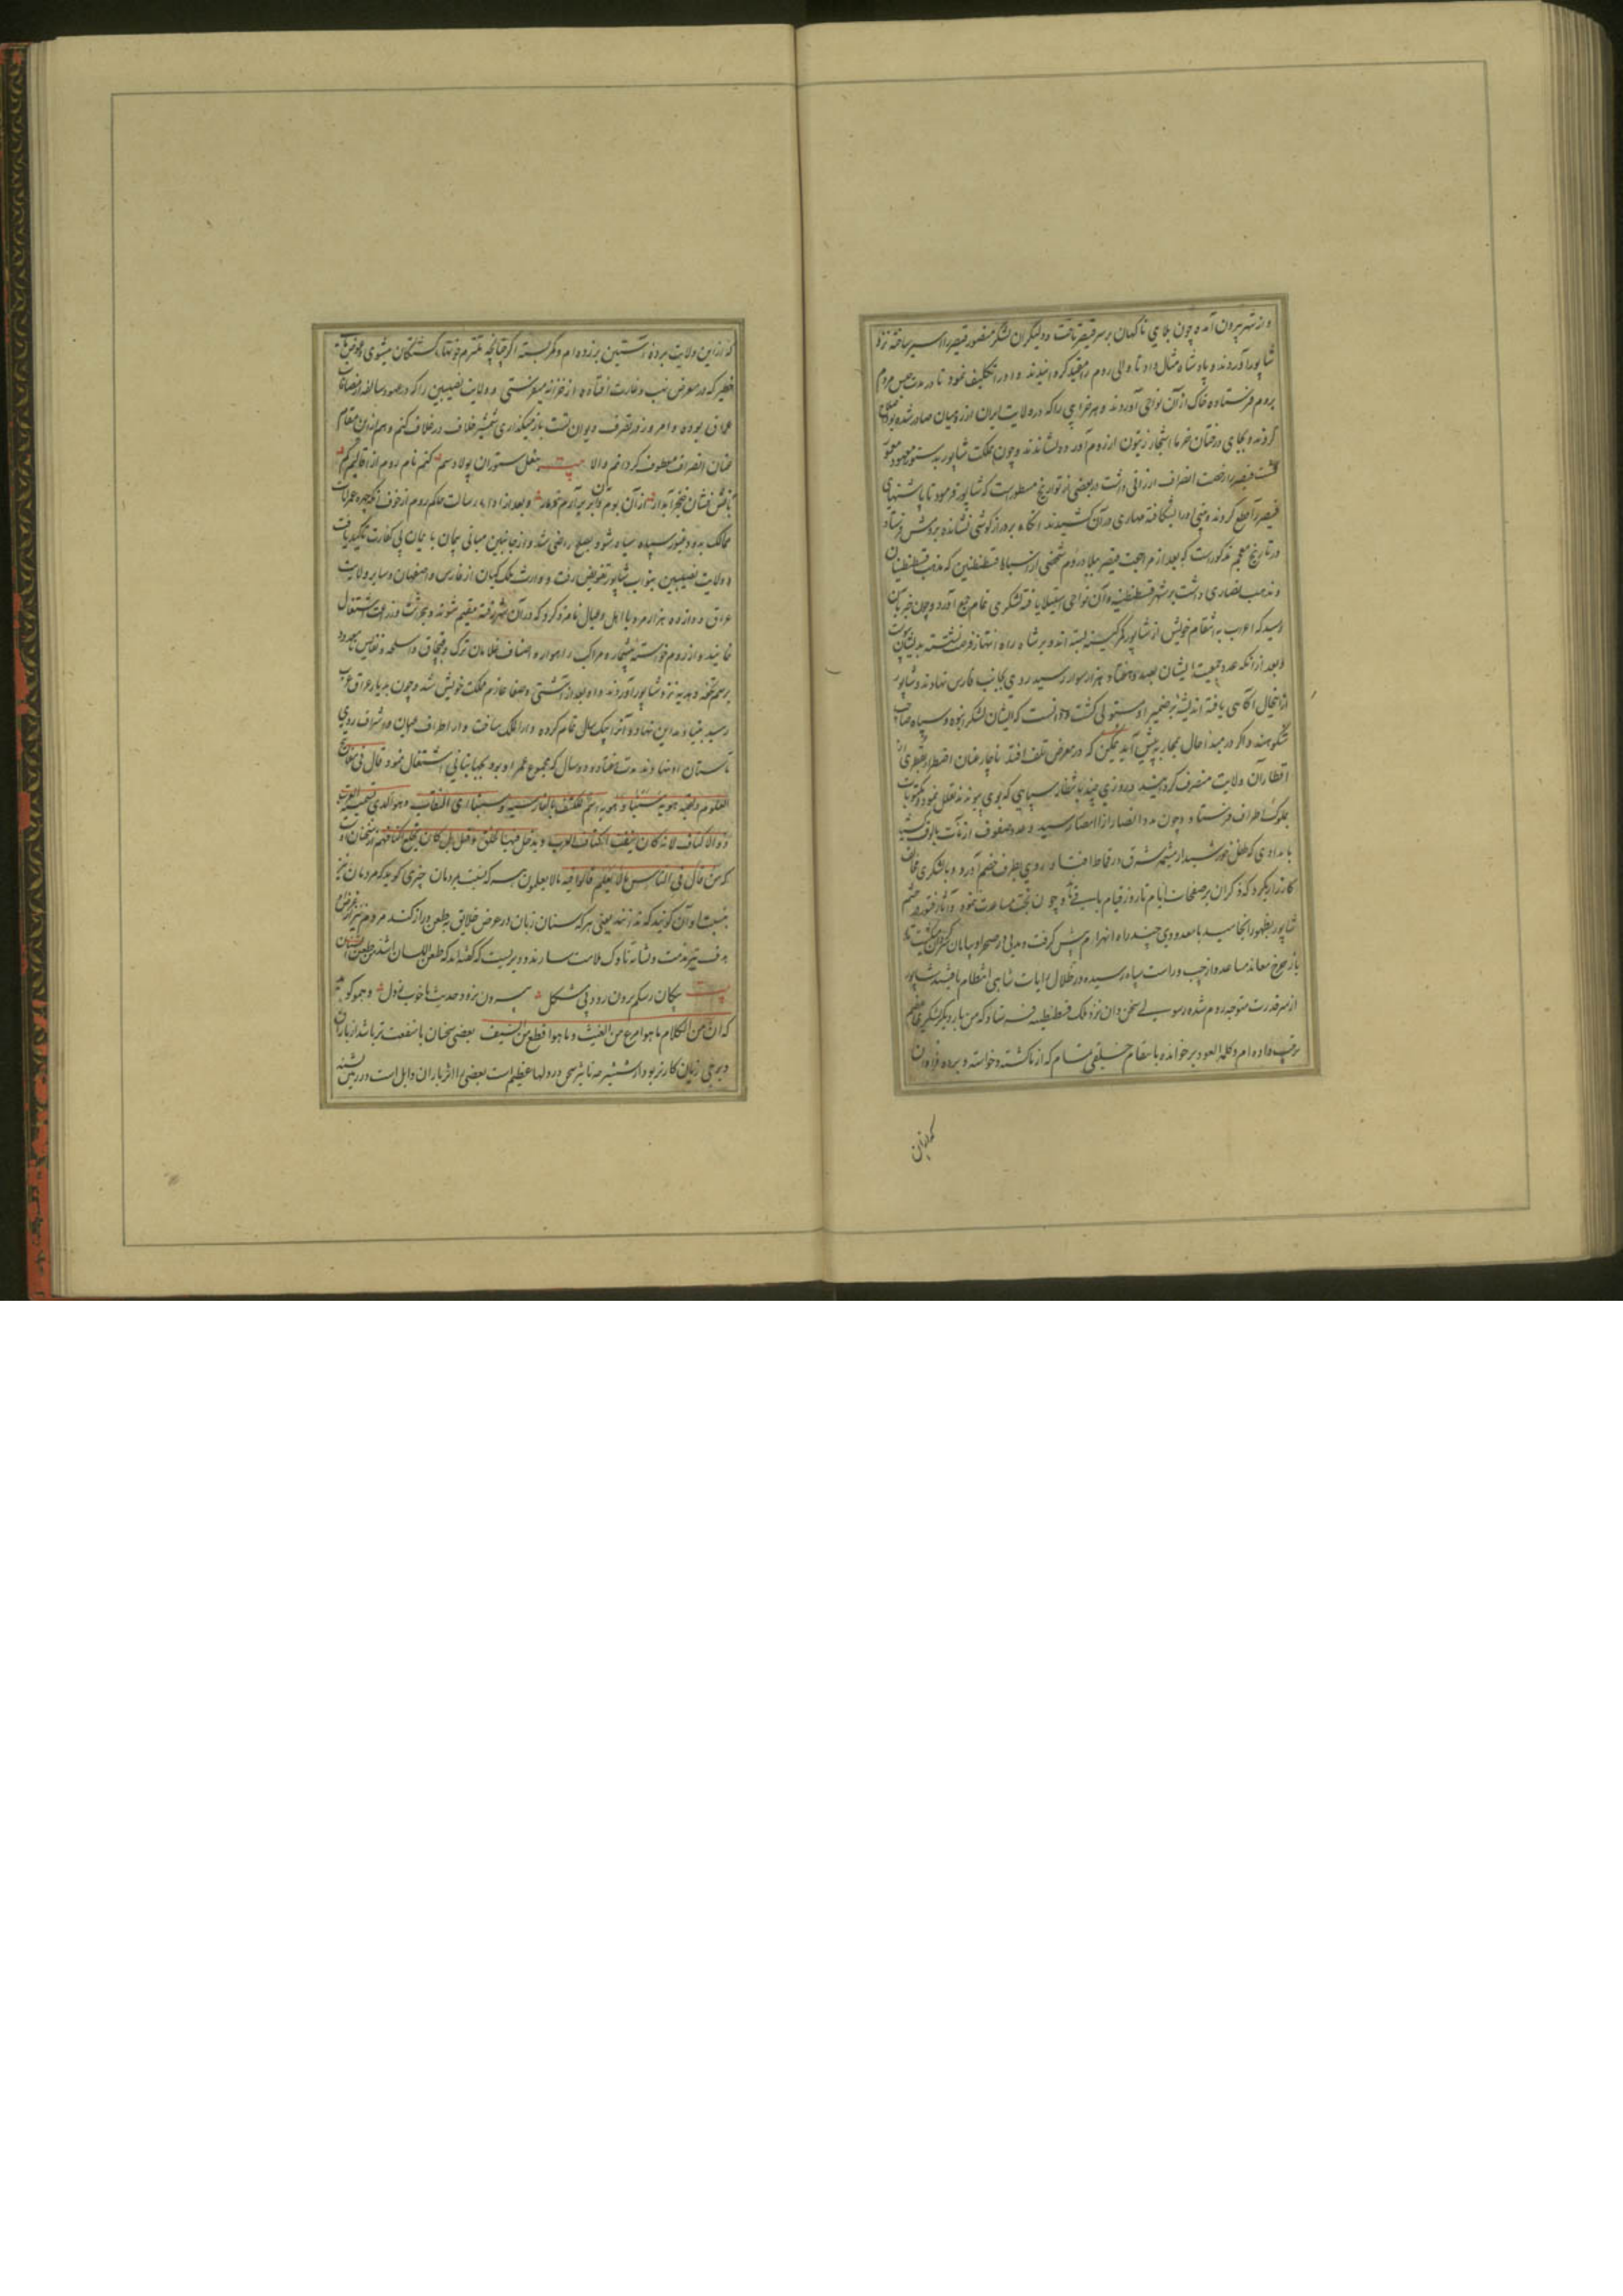 و از شهر بیرون آمده چون بلای ناکهان بر سر قیصر تاخت و دلیران لشکر منصور قیصر را اسیر ساخته نزد
شاپور آوردند و پادشاه مثال داد تا والی روم را مقید کردانیدند و او را تکلیف نمود تا در مدت حبس مردم
بروم فرستاده خاک از آن نواحی آوردند و هر خرابی را که در ولایت ایران از رومیان صادر شده بود
کردند و بجای درختان خرما اشجار زیتون از روم آورده نشاندند و چون مملکت شاپور بدستور معهود معمور
کشت قیصر را رخصت انصراف ارزانی داشت در بعضی از تواریخ مسطورست که شاپور فرمود تا پاشنهای
قیصر را قطع کردند و بینی او را شکافته مهاری در آن کشیدند انکاه بر دراز کوشی نشانده بروش فرستاد
در تاریخ معجم مذکورست که بعد از مراجعت قیصر ببلاد روم شخصی از اسباط قسطنطین که مذهب قسطنطینیان
و مذهب نصاری داشت بر شهر قسطنطنیه و آن نواحی استیلا یافته لشکری تمام جمع آورد و چون خبر بآن
رسید که اعراب به انتقام خویش از شاپور کمر کینه بسته اند و بر شاه راه انتهاز فرصت نشسته بدیشان پیوست
و بعد از آنکه عدد جمعیت ایشان بصد و هفتاد هزار سوار رسید روی بجانب فارس نهادند و شاپور
ازین حال آکاهی یافته اندیشه بر ضمیر او مستولی کشت و دانست که ایشان لشکر انبوه و سپاه صاحب
شکوهند و اکر در مبدا حال محاربه پیش آید ممکن که در معرض تلف افتد ناچار عنان اقتدار بقطری از
اقطار آن ولایت منصرف کردانید و روزی چند بانتظار سپاهی که بوی پیوندند تعلل نمود و مکتوبات
بملوک اطراف فرستاد و چون مدد انصار از امصار رسید و عدد صفوف از مات بالوف کشید
بامدادی که طفل خورشید از مشیمه مشرق در قماط افتاد روی بطرف خصم آورد و با لشکری مخالف
کارزاری کرد که ذکر آن بر صفحات ایام تا روز قیام باقیست و چون بخت مساعدت نمود و آثار فتور در چشم
شاپور بظهور انجامید با معدودی چند راه انهزام پیش کرفت و مدتی در صحرا و بیابان سرکردان کشت تا
باز چرخ معاند مساعد و از چپ و راست سپاه رسیده در ظلال رایات شاهی انتظام یافتند شاپور
از سر قدرت متوجه روم شده رسولی سخن دان نزد ملک قسطنطنیه فرستاد که من بار دیکر لشکری عظیم
ترتیب داده ام و کلمه العود بر خوانده با مقام خلیقی تمام که از ما کشته و خواسته و برده فراوان
که ازین
که از این ولایت برده آستین بر زده ام و کمر بسته اکر چنانچه ملتزم خونبهای کشتکان میشوی و عوض
خطیر که در معرض نهب و غارت افتاده از خزانه میفرستی و ولایت نصیبین را که در عهود سالفه از مضافات
عراق بوده و امروز در تصرف دیوان تست باز میکذاری شمشیر خلاف در غلاف کنم و هم ازین مقام
عنان انصراف معطوف کردانم و الا بیت بنعل ستوران پولاد سم کنم نام روم از اقالیم کم
بآتش فشان خنجر آبدار از آن بوم و بر برآرم دمار و بعد از ادای رسالت حاکم روم از خوف آنکه چهره عمرات
ممالک به دود فتور سپاه سیاه شود بصلح راضی شد و از جانبین مبانی پیمان با یمان بی کفارت تاکید یافت
و ولایت نصیبین بنواب شاپور تفویض رفت و وارث ملک کیان از فارس و اصفهان و سایر ولایت
عراق دوازده هزار مرد با اهل و عیال نامزد کرد که در آن شهر رفته مقیم شوند و بحراثت و زراعت اشتغال
نمایند و از روم خواسته بیشمار و مراکب راهوار و اصناف غلامان ترک و قبچاق و اسلحه و نفایس نامعدود
برسم تحفه و هدیه نزد شاپور آوردند و او بعد از آشتی و صفا عازم مملکت خویش شد و چون بدیار عراق عرب
رسید بنیاد مداین نهاد و آنرا بیک سال تمام کرده دارالملک ساخت و از اطراف اعیان و اشراف روی
بآستان او نهادند مدت هفتاد و دو سال که مجموع عمر او بود بجهانبانی اشتغال نمود قال فی مفاتیح
العلوم و لقبه هویه سنبا و هویه اسم للکتف بالفارسیه و سنبا ای النقاب و هو الذی تسمیه العرب
ذو الاکتاف لانه کان ینقب اکتاف العرب و یدخل فیها الحلق و قیل بل کان یخلع اکتافهم از سخنان اوست
که من قال فی الناس ما لا یعلم قالوا فیه ما لا یعلمون هر که نسبت بمردمان چیزی کوید که مردمان نیز
بنسبت او آن کویند که ندانند یعنی هر که سنان زبان در عرض خلایق بطعن دراز کند مردم نیز عرض او
هدف تیر مذمت و نشانه ناوک ملامت سازند و دیریست که کفته اند که طعن اللسان اشد من طعن السنان
بیت پیکان ز شکم برون رود بی مشکل بیرون نرود حدیث ناخوب ز دل و هم او کوید
که ان من الکلام ما هو امرع من الغیث و ما هو اقطع من السیف بعضی سخنان با منفعت تر باشد از باران
و برخی زیان کارتر بود از شمشیر چه تاثیر سخن در دلها عظیم است بعضی را اثر باران وابل است در زمین تشنه